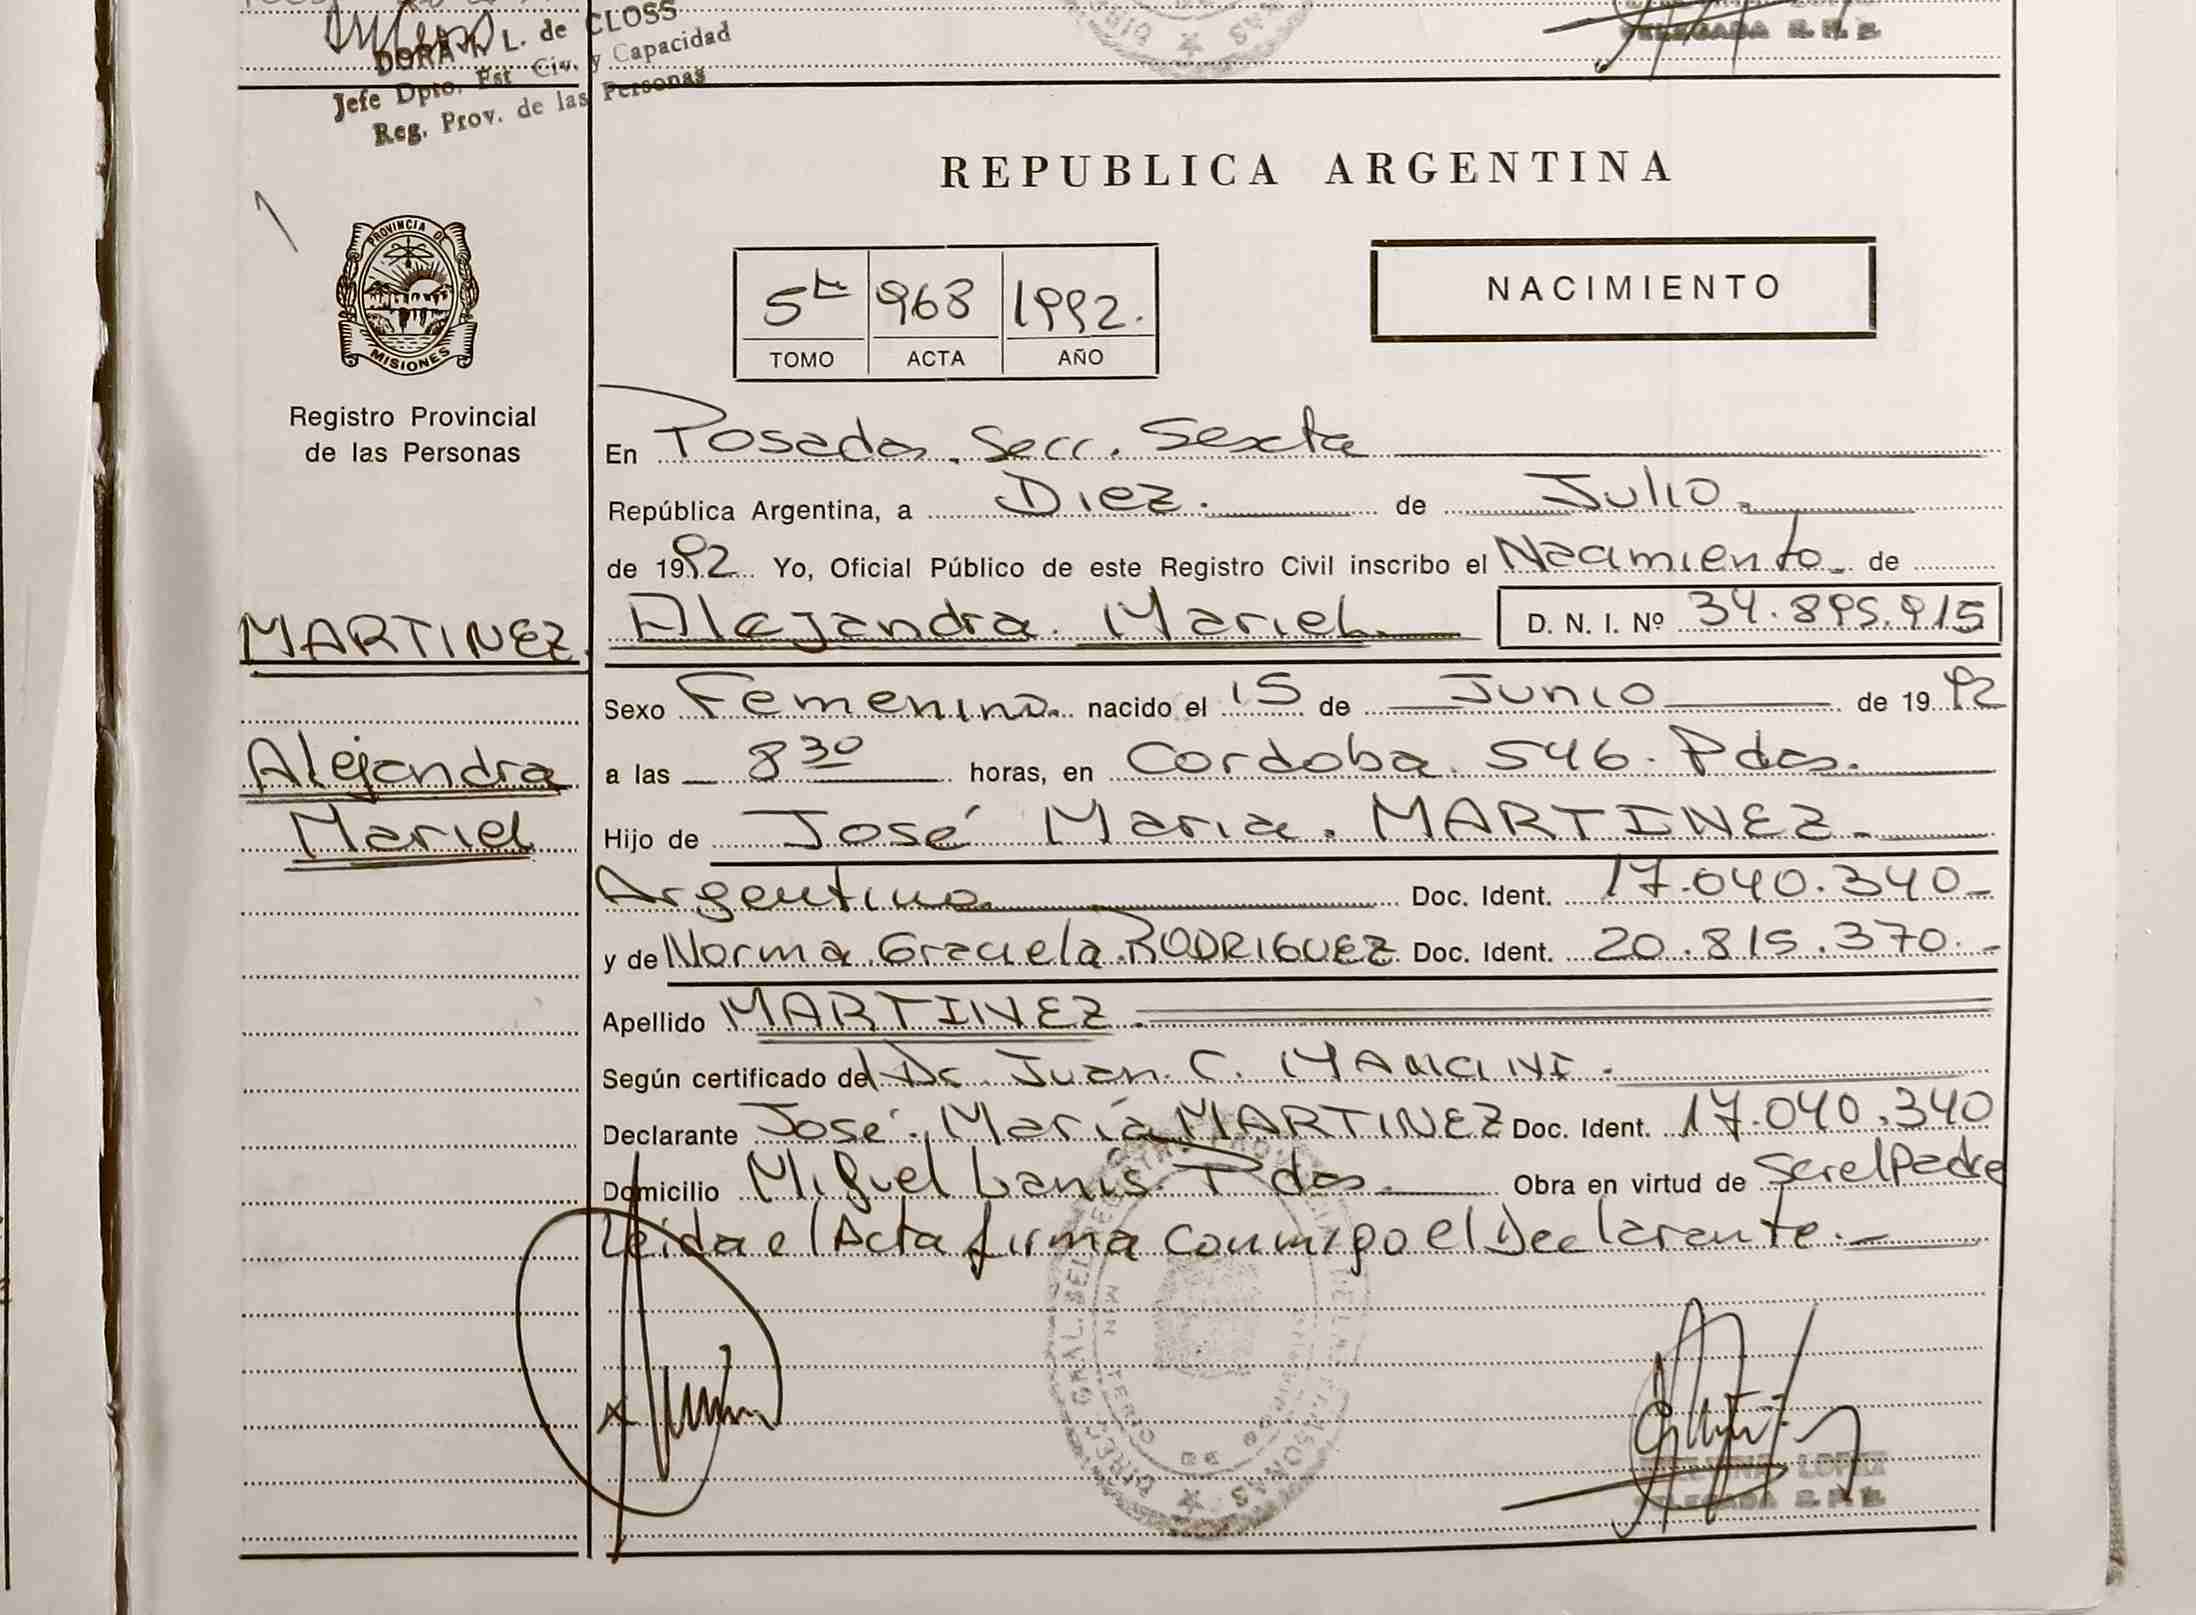 DORA I. L. de CLOSS
Jefe Dpto. Est. Civ. y Capacidad
Reg. Prov. de las Personas
DELEGADA R. P. P.
PROVINCIA DE
MISIONES
Registro Provincial
de las Personas
MARTINEZ
Alejandra
Mariel
REPUBLICA ARGENTINA
5to 968 1992.
TOMO ACTA AÑO
NACIMIENTO
En Posadas. Secc. Sexta
República Argentina, a Diez. de Julio.
de 1992 Yo, Oficial Público de este Registro Civil inscribo el Nacimiento de
Alejandra Mariel. D. N. I. Nº 34.895.915
Sexo Femenino. nacido el 15 de Junio de 1992
a las 8 30 horas, en Cordoba 546. Pdas.
Hijo de José Maria. MARTINEZ.
Argentino. Doc. Ident. 17.040.340-
y de Norma Graciela RODRIGUEZ Doc. Ident. 20.815.370.-
Apellido MARTINEZ.
Según certificado del Dr. Juan C. MANCINI.
Declarante José María MARTINEZ Doc. Ident. 17.040.340
Domicilio Miguel Lanús Pdas. Obra en virtud de Ser el Padre
Leida el Acta firma conmigo el Declarante.-
LOPEZ
DELEGADA R. P. P.